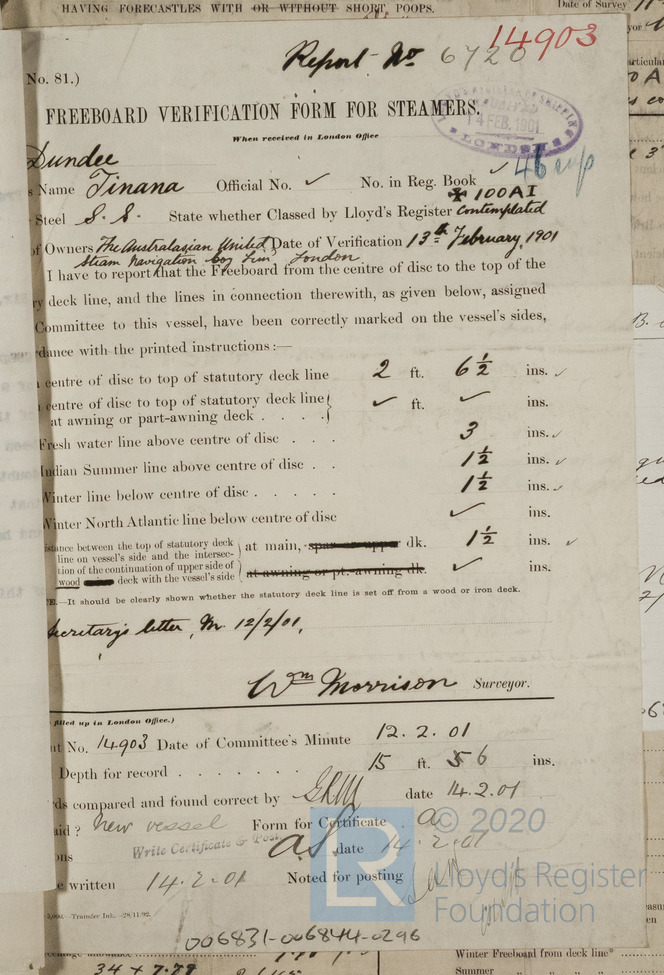 HAVING FORECASTLES WITH OR WITHOUT SHORT POOPS.
Date of Survey
Report No 6720
14903
No. 81.)
FREEBOARD VERIFICATION FORM FOR STEAMERS.
14 FEB. 1901
LONDON
When received in London Office
Dundee
46 sup
s Name Tinana Official No. ✓ No. in Reg. Book ✓
✠ 100AI
Steel S.S. State whether Classed by Lloyd's Register contemplated
of Owners The Australasian United Date of Verification 13th February, 1901
Steam Navigation Coy Lim, London.
I have to report that the Freeboard from the centre of disc to the top of the
ry deck line, and the lines in connection therewith, as given below, assigned
Committee to this vessel, have been correctly marked on the vessel's sides,
dance with the printed instructions :—
centre of disc to top of statutory deck line 2 ft. 6 1/2 ins. ✓
centre of disc to top of statutory deck line
at awning or part-awning deck . . . . ✓ ft. ✓ ins.
Fresh water line above centre of disc . . . 3 ins. ✓
Indian Summer line above centre of disc . . 1 1/2 ins. ✓
Winter line below centre of disc . . . . . 1 1/2 ins. ✓
Winter North Atlantic line below centre of disc ✓ ins.
istance between the top of statutory deck
line on vessel's side and the intersec- at main, spar or upper dk. 1 1/2 ins. ✓
tion of the continuation of upper side of
wood deck with the vessel's side at awning or pt. awning dk. ✓ ins.
TE.—It should be clearly shown whether the statutory deck line is set off from a wood or iron deck.
Secretary's letter, M. 12/2/01,
Wm Morrison Surveyor.
filled up in London Office.)
t No. 14903 Date of Committee's Minute 12.2.01
Depth for record . . . . . . . 15 ft. 56 ins.
ds compared and found correct by GRM date 14.2.01
aid ? New vessel Form for Certificate a
Write Certificate & Post
ons a.S. date 14.2.01
e written 14.2.01 Noted for posting
5,000. Transfer Ink.—28/11/92.
LR
© 2020
Lloyd's Register
Foundation
006831-006844-0296
34 + 7.79
Winter Freeboard from deck line
Summer